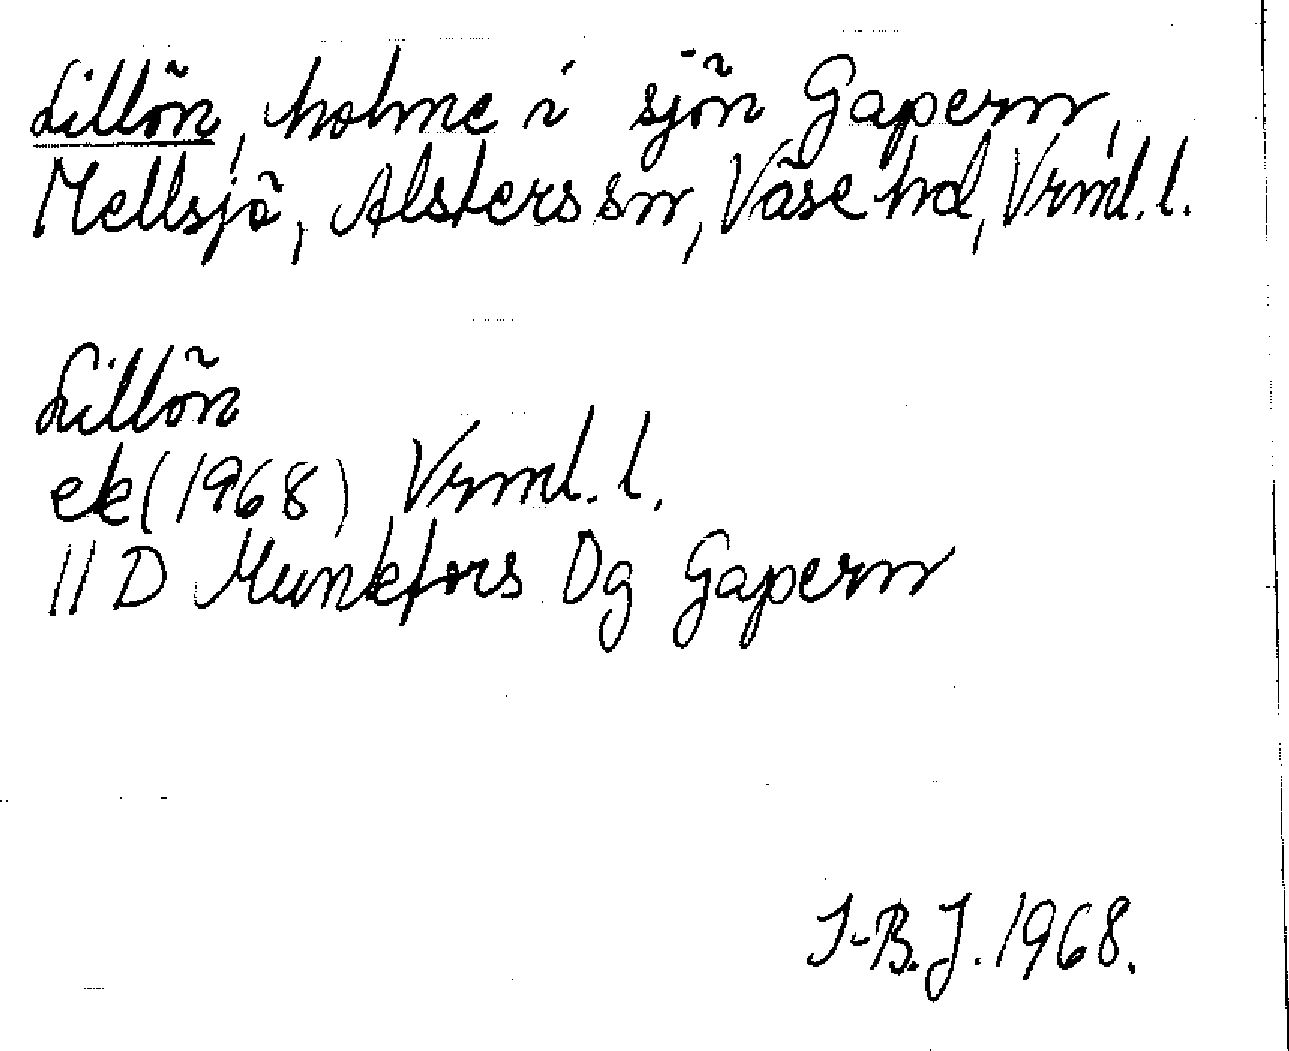 Lillön, holme i sjön Gapern,
Mellsjö, Alsters sn, Väse hd, Vrml. l.
Lillön
ek (1968) Vrml. l.
11 D Munkfors Dg Gapern
I-B.J. 1968.